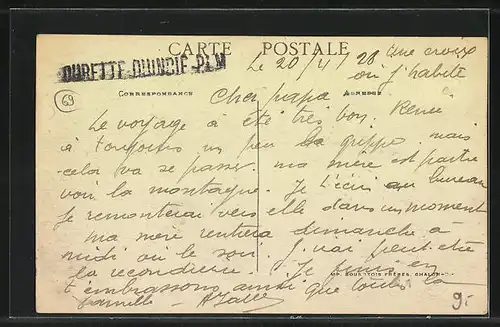 CARTE POSTALE
DURETTE-QUINCIÉ P.L.M
Le 20/4/28
une croix
où j'habite
69
CORRESPONDANCE
ADRESSE
Cher papa
Le voyage a été très bon. Renée
a toujours un peu la grippe mais
cela va se passer. ma mère est partie
voir la montagne. Je t'écris au bureau
Je remonterai vers elle dans un moment
ma mère rentrera dimanche à
midi ou le soir. J'irai peut-etre
la reconduire. Je finis en
t'embrassant ainsi que toute la
famille -
IMP. BOURGEOIS FRÈRES, CHALON-
9.-